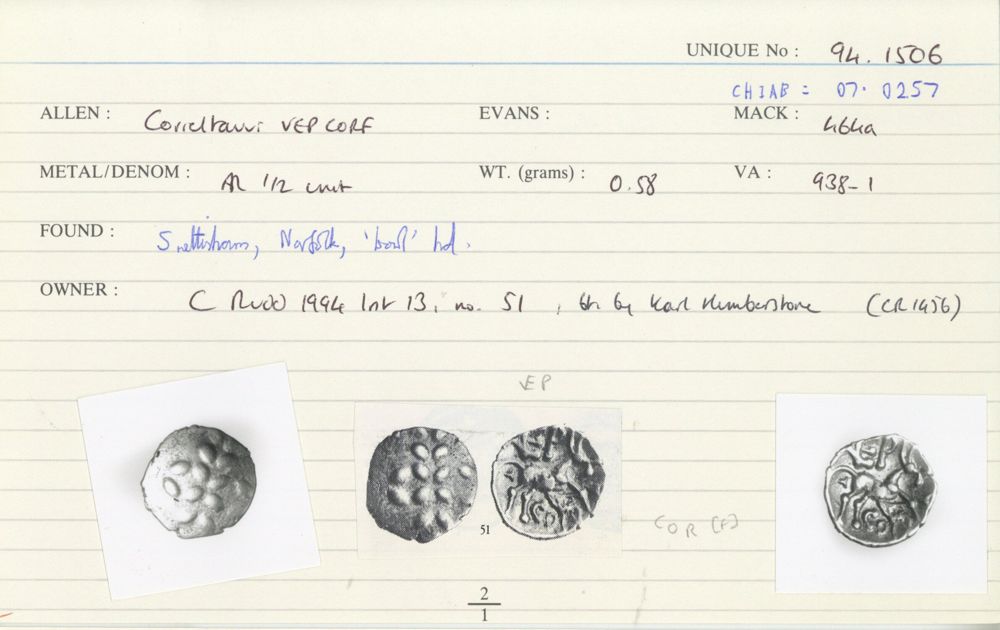 UNIQUE No : 94. 1506
CHIAB = 07. 0257
ALLEN : Corieltauvi VEP CORF EVANS : MACK : 464a
METAL/DENOM : AR 1/2 unit WT. (grams) : 0.58 VA : 938-1
FOUND : Snettisham, Norfolk, 'bowl' hd.
OWNER : C Rudd 1994 list 13, no. 51, bt by Karl Humberstone (CR1456)
VEP
51
COR [F]
2
1